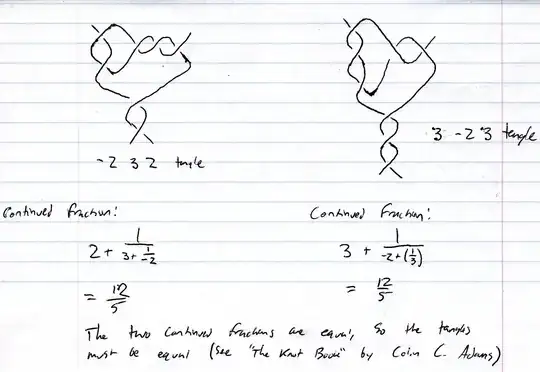 -2 3 2 tangle
3 -2 3 tangle
Continued fraction:
Continued fraction:
2 + 1/(3 + 1/-2)
3 + 1/(-2 + (1/3))
= 12/5
= 12/5
The two continued fractions are equal, so the tangles
must be equal (see "The Knot Book" by Colin C. Adams)